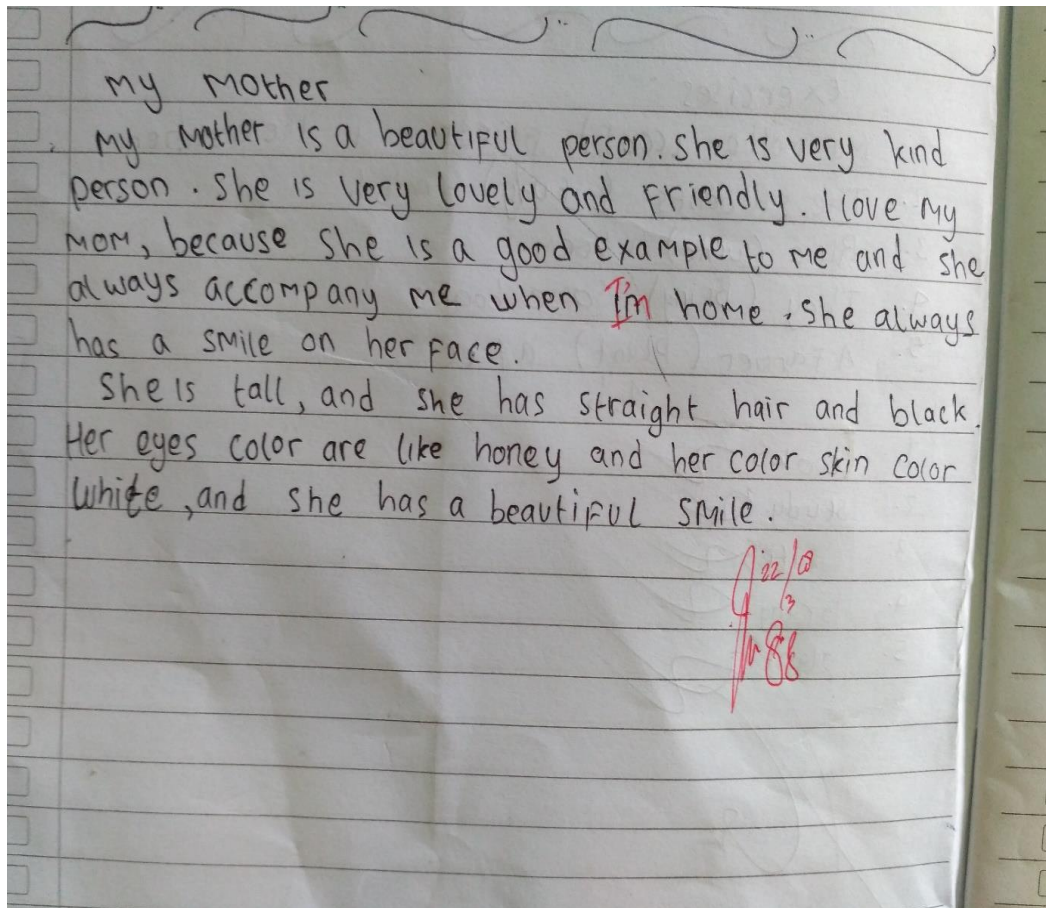 My Mother
My Mother is a beautiful person. She is very kind
person. She is very lovely and Friendly. I love My
Mom, because She is a good example to me and she
always accompany me when I'm home. She always
has a smile on her Face.
She is tall, and she has straight hair and black.
Her eyes color are like honey and her color skin color
White, and she has a beautiful smile.
22/
3
88